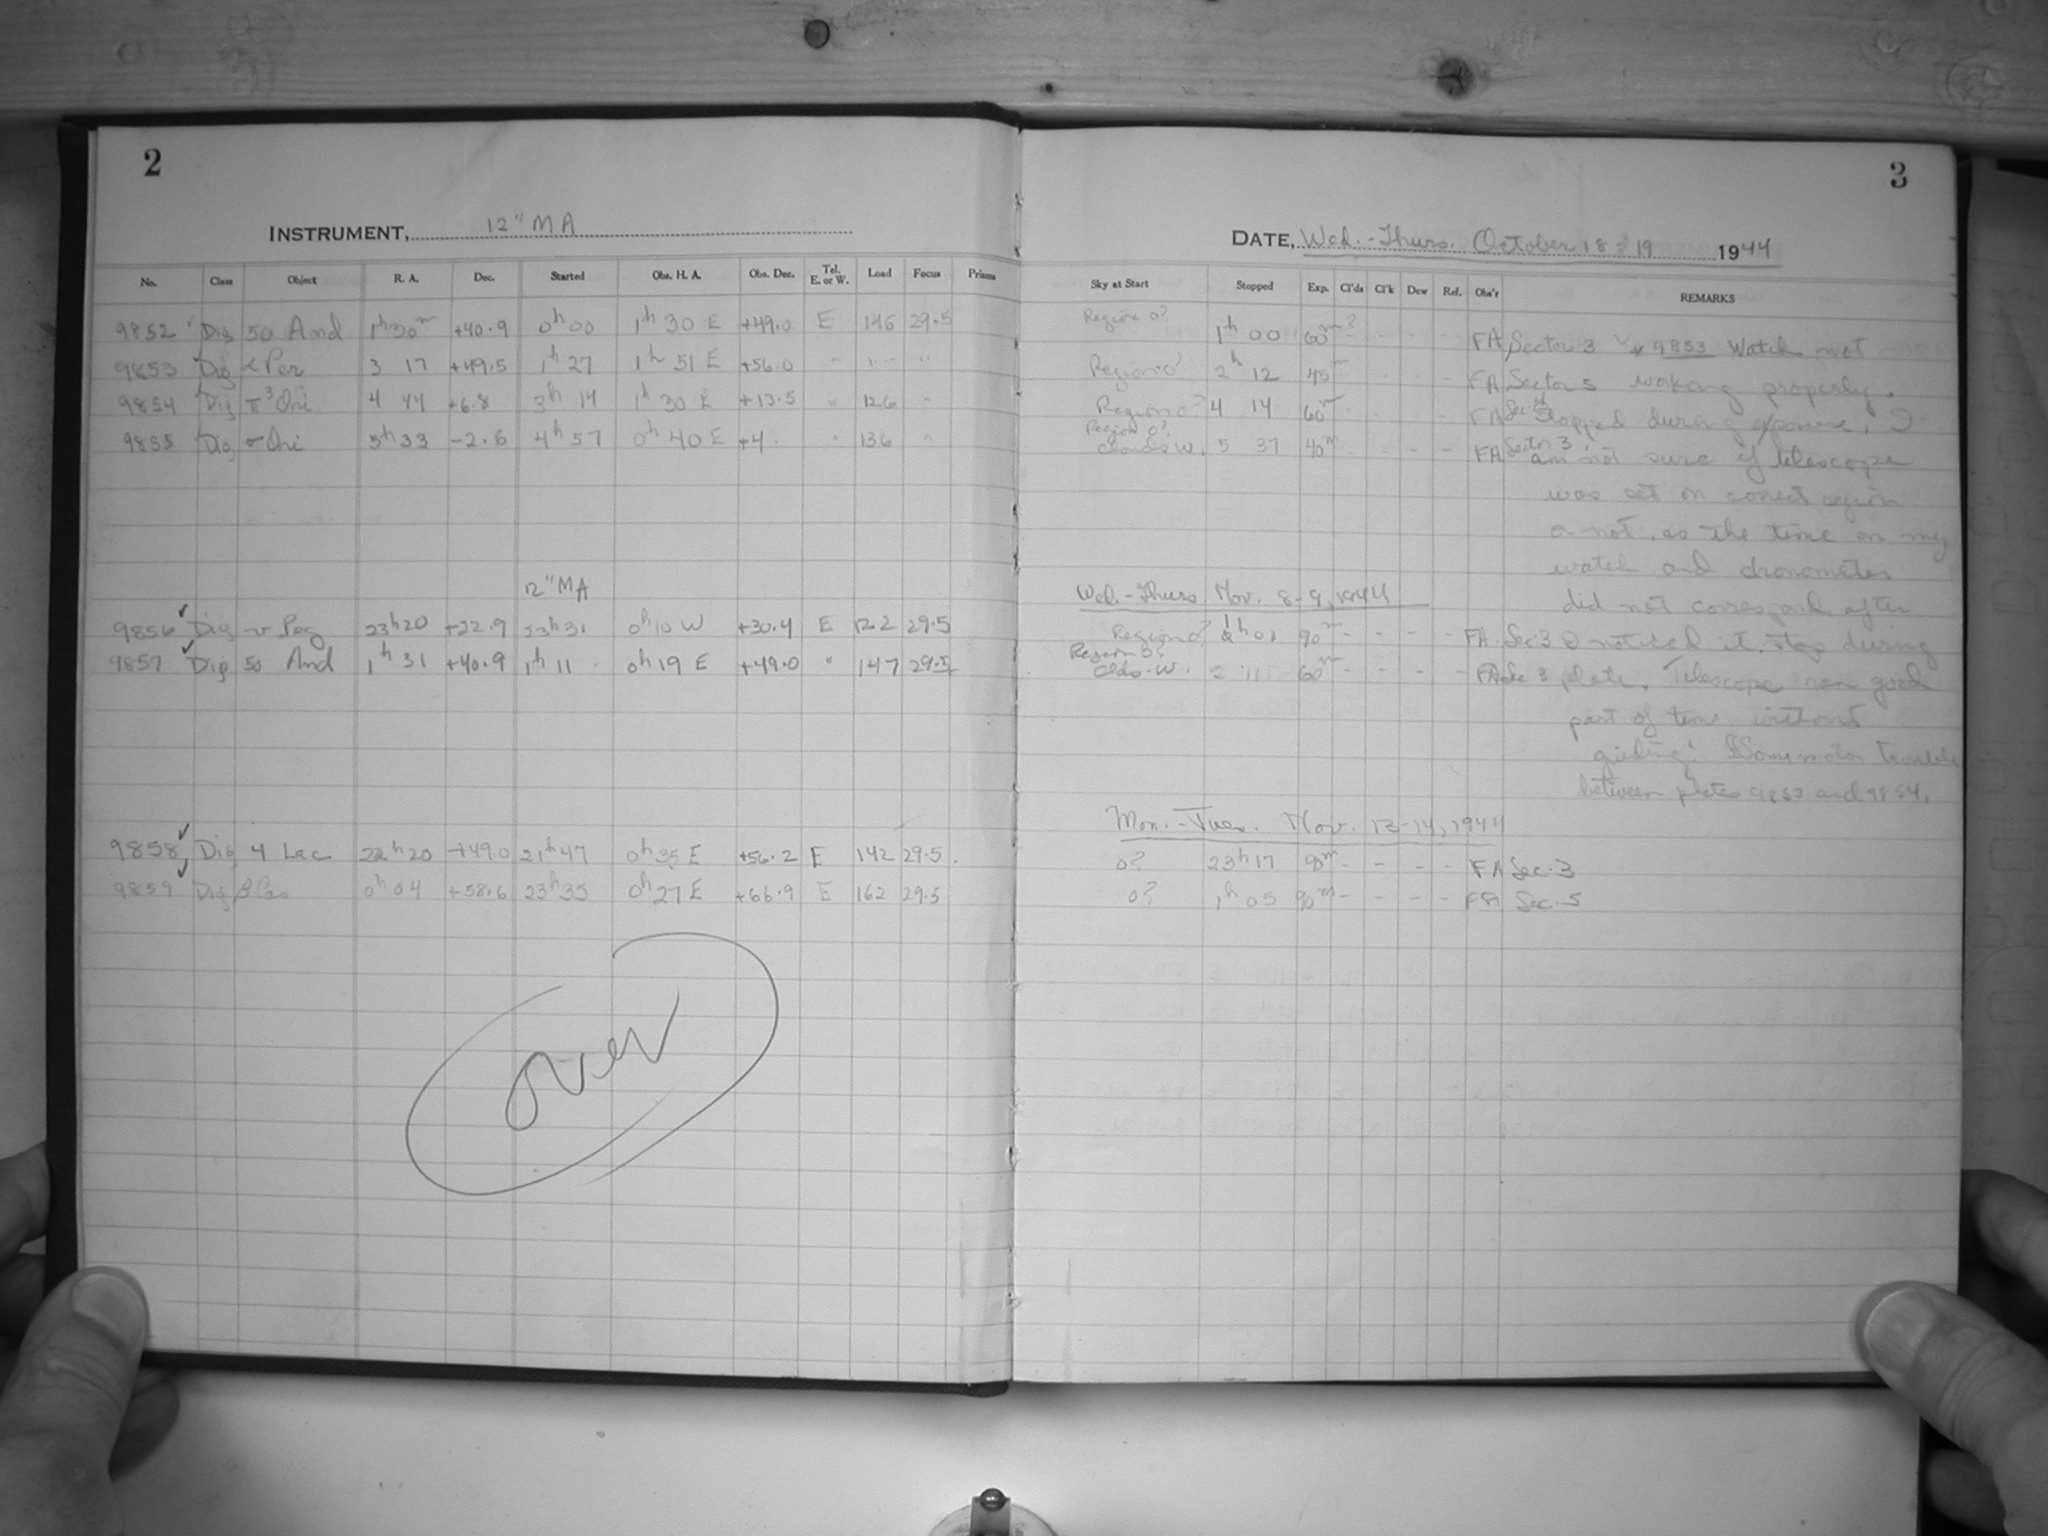 2
INSTRUMENT, 12" MA
No. Class Object R. A. Dec. Started Obs. H. A. Obs. Dec. Tel. E. or W. Load Focus Prisms
9852 Dig 50 And 1h 30m +40.9 0h 00 1h 30 E +49.0 E 146 29.5
9853 Dig α Per 3 17 +49.5 1h 27 1h 51 E +56.0 " " "
9854 Dig π3 Ori 4 44 +6.8 3h 14 1h 30 E +13.5 " 126 "
9855 Dig σ Ori 5h 33 -2.6 4h 57 0h 40 E +4. " 136 "
12" MA
9856 Dig υ Peg 23h20 +22.9 23h 31 0h 10 W +30.4 E 122 29.5
9857 Dig 50 And 1h 31 +40.9 1h 11 0h 19 E +49.0 " 147 29.5
9858 Dig 4 Lac 22h20 +49.0 21h47 0h35 E +56.2 E 142 29.5
9859 Dig β Cas 0h 04 +58.6 23h35 0h27 E +66.9 E 162 29.5
over
3
DATE, Wed.-Thurs. October 18-19 1944
Sky at Start Stopped Exp. Cl'ds Cl'k Dew Ref. Obs'r REMARKS
Region 0? 1h 00 60m ? - - - FA Sector 3 * 9853 Watch not
Region 0? 2h 12 45m - - - - FA Sector 5 working properly.
Region 0? 4 14 60m - - - - FA Sec. 4 Stopped during exposure, I
Region 0? Clouds W. 5 37 40m - - - - FA Sector 3 am not sure if telescope
was set on correct region
or not, as the time on my
watch and chronometer
Wed.-Thurs Nov. 8-9, 1944 did not correspond after
Region 0? 1h 01 90m - - - - FA Sec 3 I noticed it stop during
Region 0? Clds. W. 2 11 60m - - - - FA Sec 3 plate. Telescope ran good
part of time without
guiding. Some motor trouble
between plates 9853 and 9854.
Mon.-Tues. Nov. 13-14, 1944
0? 23h17 90m - - - - FA Sec. 3
0? 1h 05 90m - - - - FA Sec. 5